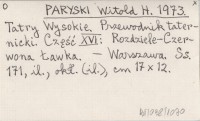 PARYSKI Witold H. 1973.
Tatry Wysokie. Przewodnik tater-
nicki. Część XVI: Rozdziele-Czer-
wona Ławka. — Warszawa. Ss.
171, il., okł. (il.), cm 17 × 12.